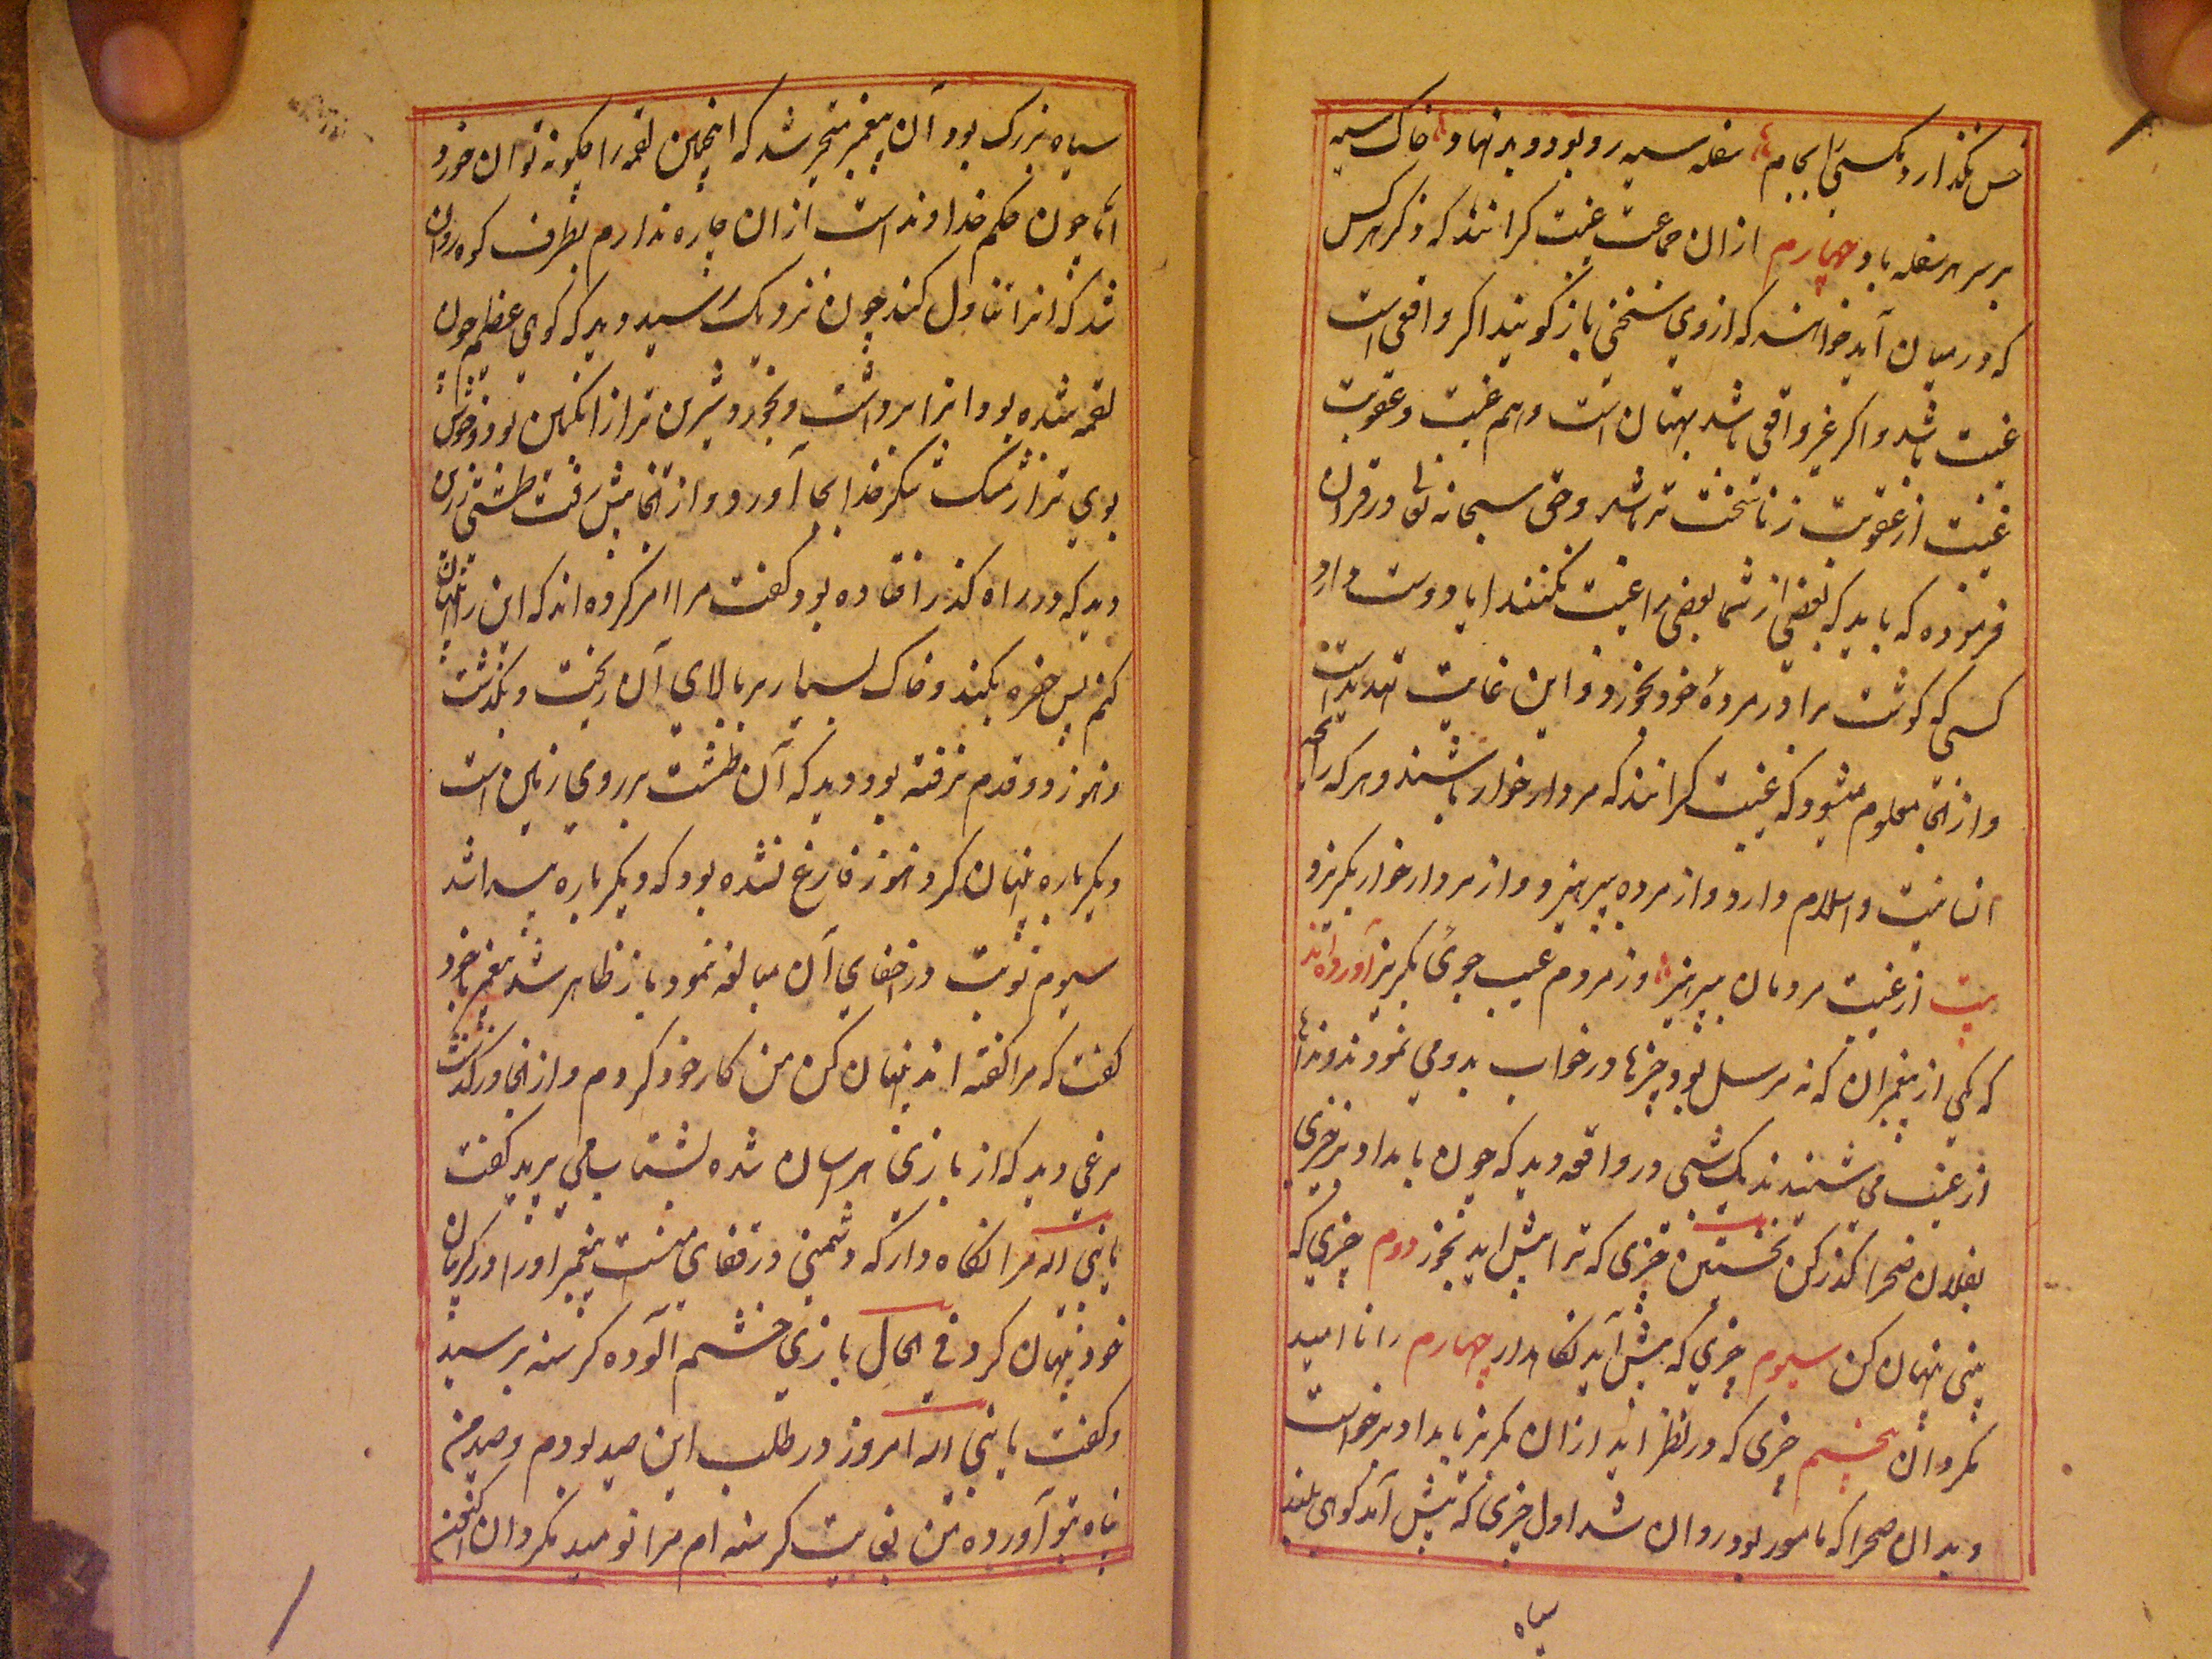 خس نگذارد بکسی را بجام سفله سیه رو بود و بد نهاد خاک سیه
بر سر هر سفله باد چهارم از ان جماعت غیبت کرانند که ذکر هر کس
که در میان آید خواهند که از وی سخنی باز کویند اکر واقعی است
غیبت باشد و اکر غیر واقعی باشد بهتان است و هم غیبت و عقوبت
غیبت از عقوبت زنا سخت تر باشد و حق سبحانه تعالی در قران
فرموده که باید که بعضی از شما بعضی را غیبت نکنند ایا دوست دارد
کسی که کوشت برادر مردهٔ خود بخورد و این غایت تهدید است
و از اینجا معلوم میشود که غیبت کرانند که مردار خوار باشند و هر که رایحه
انسانیت و اسلام دارد و از مرده بپرهیزد و از مردار خوار بکریزد
بیت از غیبت مردمان بپرهیز وز مردم عیب جوی بکریز آورده اند
که یکی از پیغمبران که نه مرسل بود چیزها در خواب بدو می نمودند و نداها
از غیب می شنیدند یک شبی در واقعه دید که چون بامداد برخیزی
بفلان صحرا کذر کن نخستین چیزی که ترا پیش اید بخور دوم چیزی که
بینی پنهان کن سیوم چیزی که پیش آید نکاهدار چهارم را نا امید
مکردان پنجم چیزی که در نظر اید از ان بکریز بامداد برخواست
و بدان صحرا که مامور بود روان شد اول چیزی که پیش آمد کوهی بلند
سیاه
سیاه بزرک بود آن پیغمبر متحیر شد که اینچنین لقمه را چکونه توان خورد
اما چون حکم خداوند است از ان چاره ندارم بطرف کوه روان
شد که انرا تناول کند چون نزدیک رسید دید که کوهی عظیم چون
لقمه شده بود انرا برداشت و بخورد شیرین تر از انکبین بود و خوش
بوی تر از مشک شکر خدا بجا آورد و از انجا پیش رفت طشتی زرین
دید که در راه کذر افتاده بود کفت مرا امر کرده اند که این را پنهان
کنم پس حفره بکند و خاک بسیار بر بالای آن ریخت و بکذشت
و هنوز دو قدم نرفته بود دید که آن طشت بر روی زمین است
دیکر باره پنهان کرد هنوز فارغ نشده بود که دیکر باره پیدا شد
سیوم نوبت در اخفای آن مبالغه نمود باز ظاهر شد پیغمبر با خود
کفت که مرا کفته اند پنهان کن من کار خود کردم و از انجا در کذشت
مرغی دید که از بازی هراسان شده بشتاب می پرید کفت
یا نبی اله مرا نکاه دار که دشمنی در قفای منست پیغمبر او را در کریبان
خود پنهان کرد فی الحال بازی خشم آلوده کرسنه برسید
و کفت یا نبی اله امروز در طلب این صید بودم و صید من
پناه بتو آورده من بغایت کرسنه ام مرا نومید مکردان